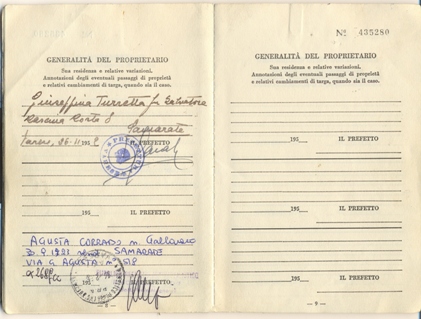 GENERALITÀ DEL PROPRIETARIO
Sua residenza e relative variazioni.
Annotazioni degli eventuali passaggi di proprietà
e relativi cambiamenti di targa, quando sia il caso.
Giuseppina Turretta fu Salvatore
Samarate
Varese, 26-11 195
195 IL PREFETTO
AGUSTA CORRADO n. Gallarate
SAMARATE
VIA G. AGUSTA n. 518
195 IL PREFETTO
— 8 —
Nº 435280
GENERALITÀ DEL PROPRIETARIO
Sua residenza e relative variazioni.
Annotazioni degli eventuali passaggi di proprietà
e relativi cambiamenti di targa, quando sia il caso.
195 IL PREFETTO
195 IL PREFETTO
— 9 —